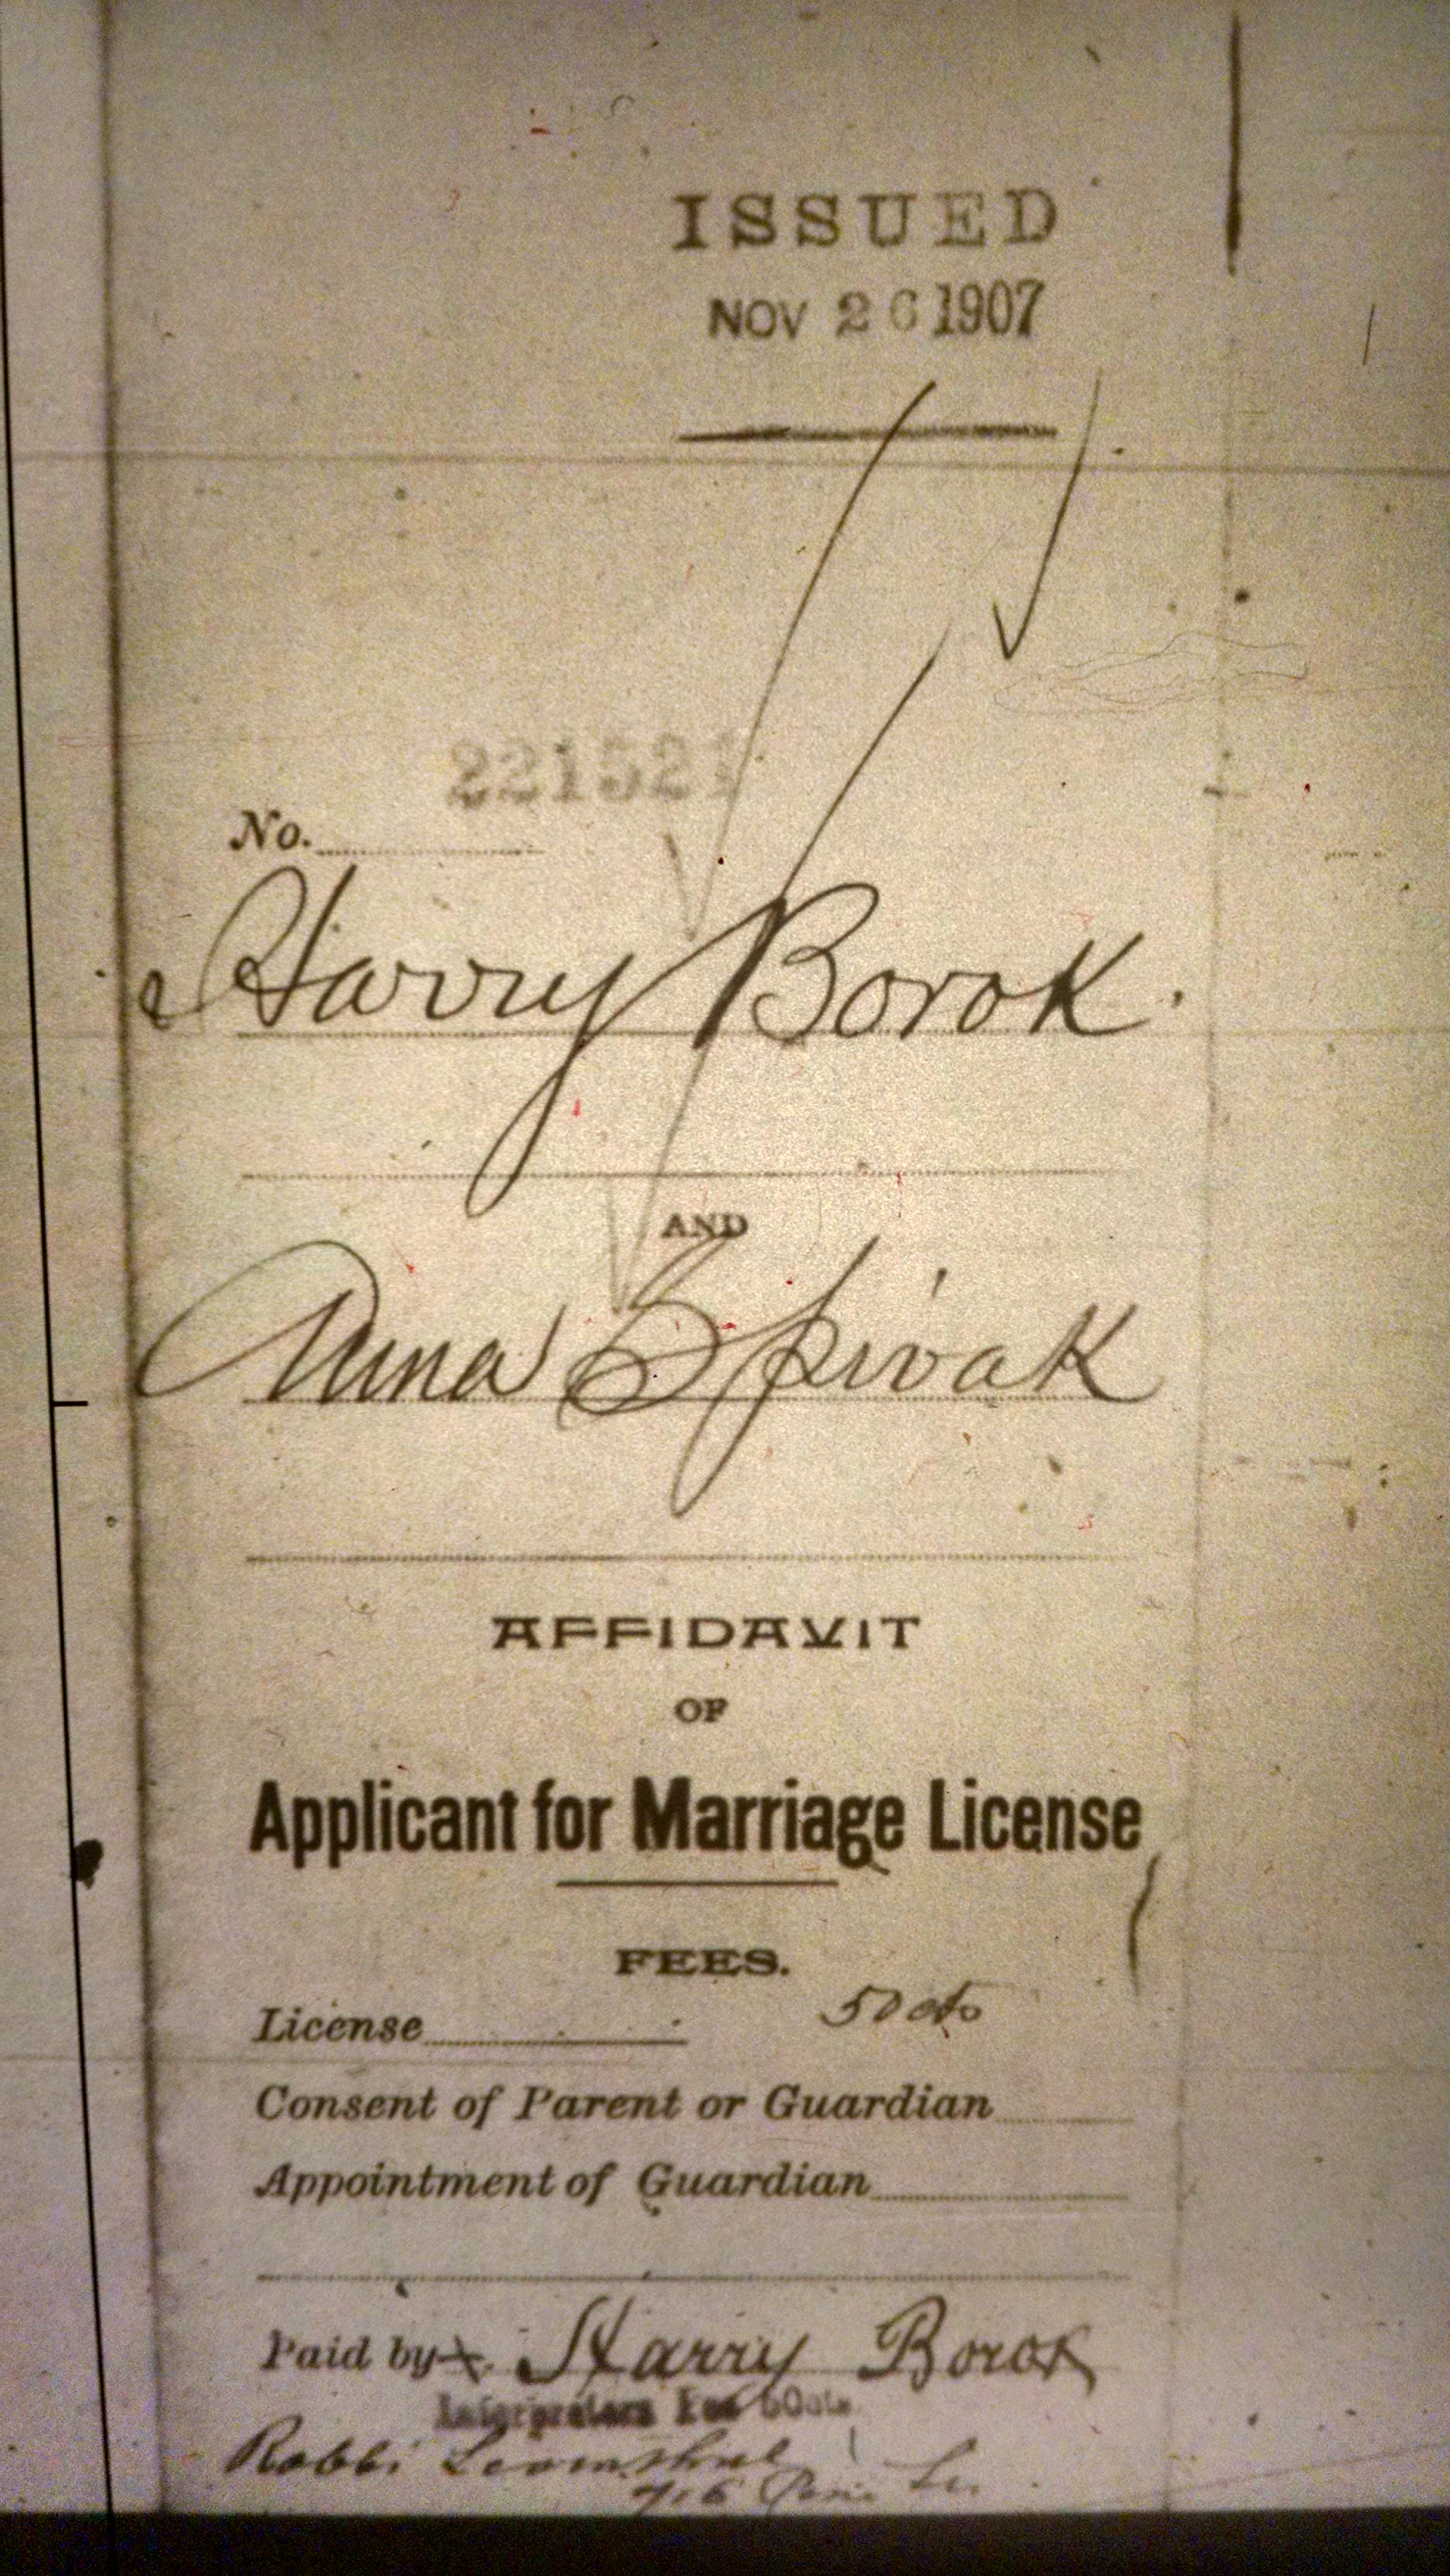 ISSUED
NOV 26 1907
221521
No.
Harry Borok.
AND
Anna Spivak
AFFIDAVIT
OF
Applicant for Marriage License
FEES.
License 50 cts
Consent of Parent or Guardian
Appointment of Guardian
Paid by x. Harry Borok
Interpreters Fee 50cts
Rabbi Leventhal
716 Pine St.